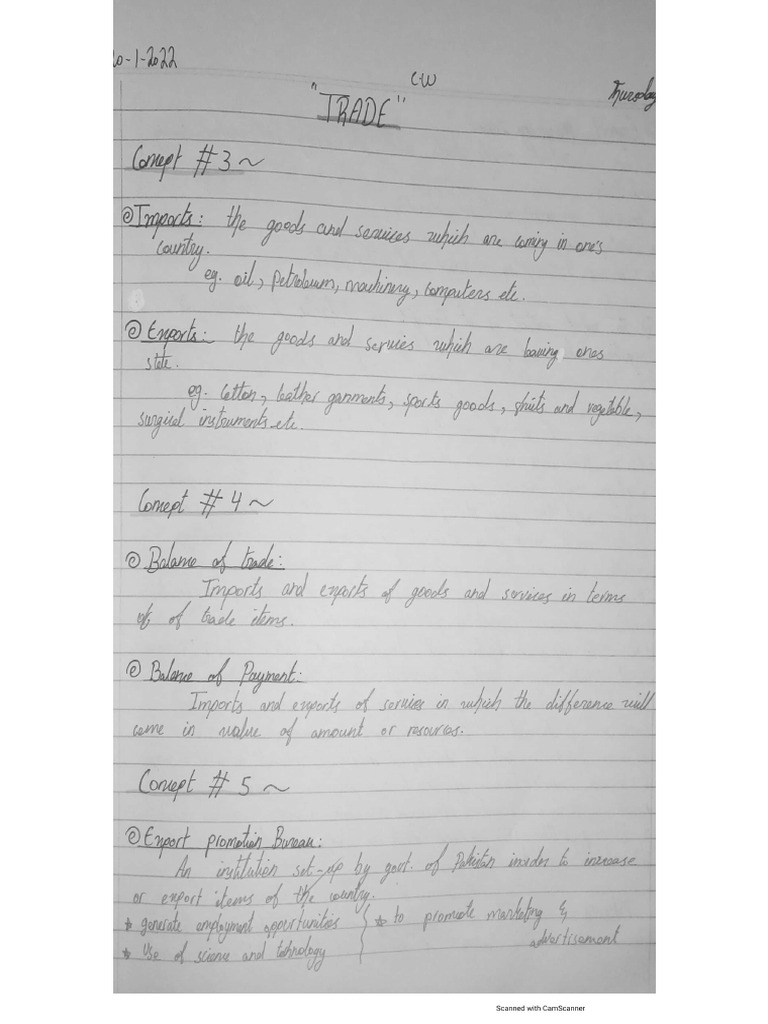 20-1-2022
C.W
Thursday
"TRADE"
Concept # 3 ~
Imports: the goods and services which are coming in one's
country.
eg. oil, petroleum, machinery, computers etc.
Exports: the goods and services which are leaving ones
state.
eg. Cotton, leather garments, sports goods, fruits and vegetable,
surgical instruments etc.
Concept # 4 ~
Balance of trade:
Imports and exports of goods and services in terms
of of trade items.
Balance of Payment:
Imports and exports of services in which the difference will
come in value of amount or resources.
Concept # 5 ~
Export promotion Bureau:
An institution set-up by govt. of Pakistan to increase
or export items of the country.
* generate employment opportunities
* Use of science and technology
* to promote marketing &
advertisement
Scanned with CamScanner